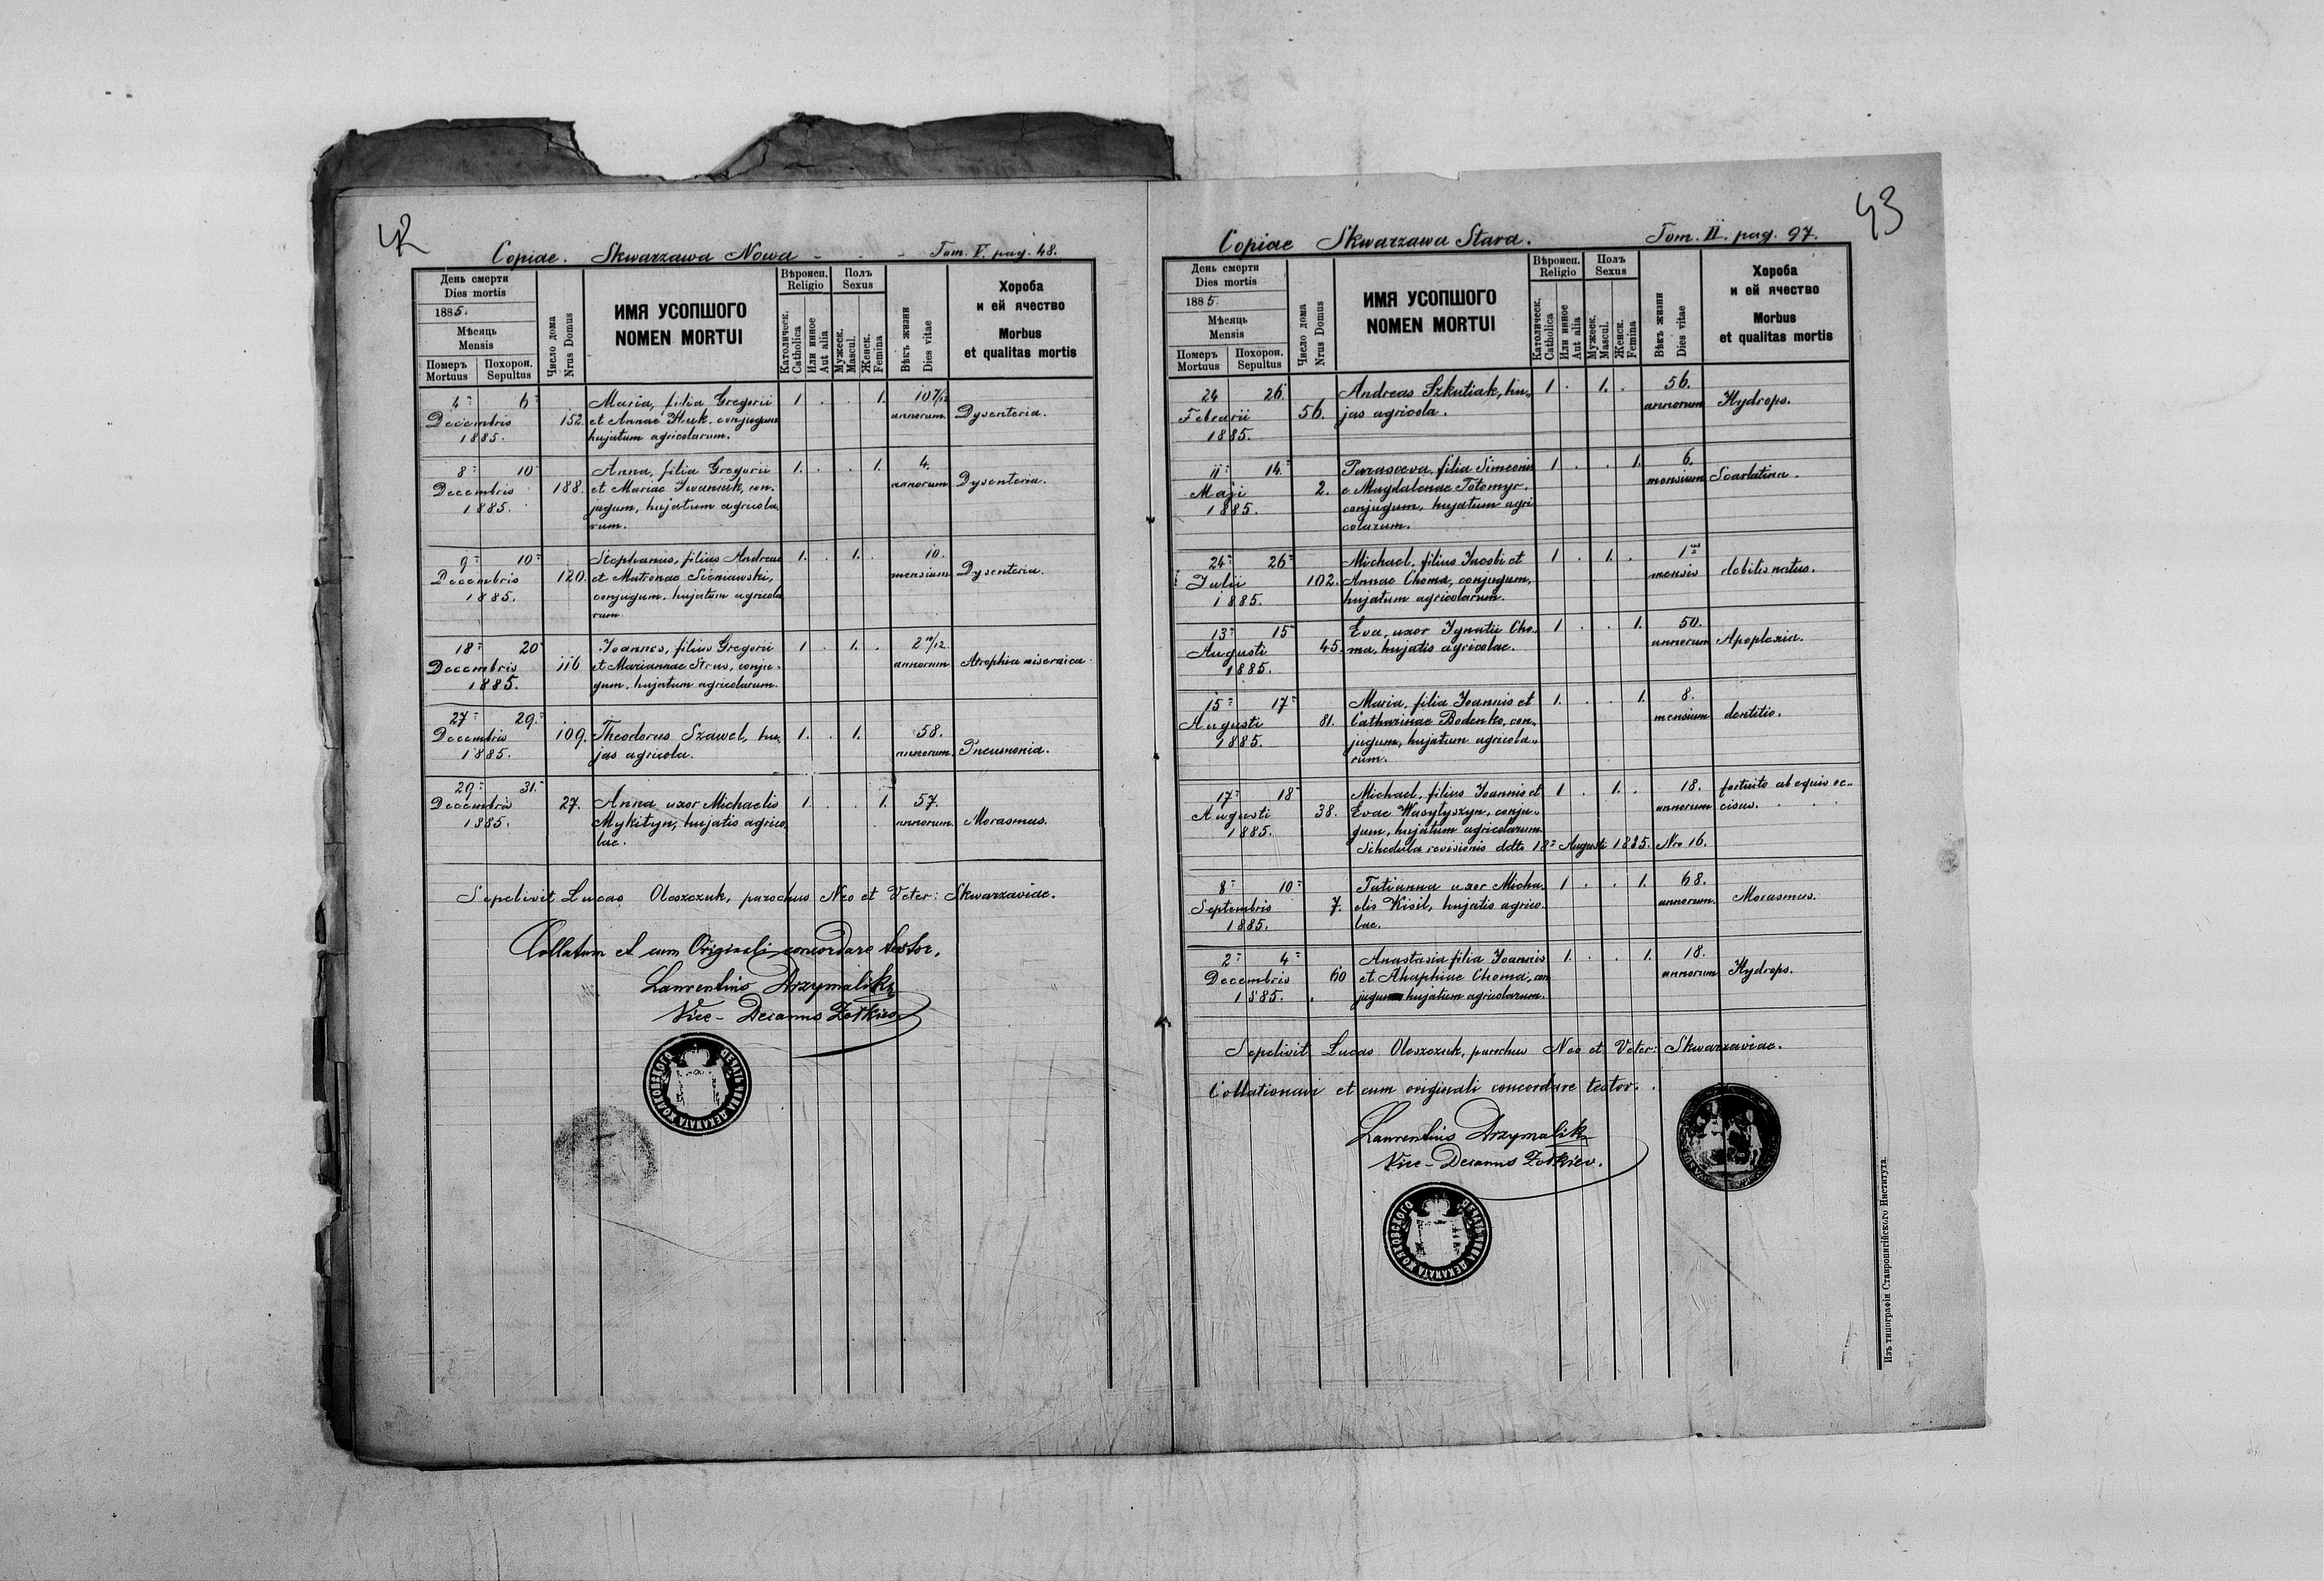 42
Copiae. Skwarzawa Nowa - - - Tom. V. pag. 48.
День смерти
Dies mortis
1885.
Мѣсяць
Mensis
Померъ
Mortuus
Похорон.
Sepultus
Число дома
Nrus Domus
ИМЯ УСОПШОГО
NOMEN MORTUI
Вѣроисп.
Religio
Католическ.
Catholica
Или инное
Aut alia
Полъ
Sexus
Мужеск.
Mascul.
Женск.
Femina
Вѣкъ жизни
Dies vitae
Хороба
и ей ячество
Morbus
et qualitas mortis
4 6 Maria, filia Gregorii 1 . . 1. 10 7/12
Decembris 152. et Annae Huk, conjugum annorum. Dysenteria.
1885. hujatum agricolarum.
8 10 Anna, filia Gregorii 1. . . 1. 4.
Decembris 188. et Mariae Iwaniuk, con- annorum Dysenteria.
1885. jugum, hujatum agricola-
rum.
9 10 Stephanus, filius Andreae 1. . 1. . 10.
Decembris 120. et Matronae Sieniawski, mensium Dysenteria.
1885. conjugum, hujatum agricola
rum.
18 20 Joannes, filius Gregorii 1 . 1. . 2 10/12
Decembris 116 et Mariannae Strus, conju- annorum Atrophia miseraica.
1885. gum, hujatum agricolarum.
27 29.
Decembris 109. Theodorus Szawel, hu- 1. . 1. 58.
1885. jas agricola. annorum. Pneumonia.
29 31.
Decembris 27. Anna uxor Michaelis 1. . . 1. 57.
1885. Mykityn, hujatis agrico- annorum. Marasmus.
lae.
Sepelivit Lucas Oleszczuk, parochus Neo et Veter: Skwarzaviae.
Collatum et cum Originali concordare testor.
Laurentius Drzymalik
Vice-Decanus Żołkiew.
ПЕЧАТЬ ДЕКАНАТА ЖОЛКОВСКОГО
43
Copiae Skwarzawa Stara. Tom. II. pag. 97.
День смерти
Dies mortis
1885.
Мѣсяць
Mensis
Померъ
Mortuus
Похорон.
Sepultus
Число дома
Nrus Domus
ИМЯ УСОПШОГО
NOMEN MORTUI
Вѣроисп.
Religio
Католическ.
Catholica
Или инное
Aut alia
Полъ
Sexus
Мужеск.
Mascul.
Женск.
Femina
Вѣкъ жизни
Dies vitae
Хороба
и ей ячество
Morbus
et qualitas mortis
24 26 Andreas Szkutiak, hu- 1 . 1. . 56.
Februarii 56. jas agricola. annorum Hydrops.
1885.
11 14 Parasceva, filia Simeonis 1 . . 1. 6.
Maji 2. e Magdalenae Totomyr, mensium Scarlatina.
1885. conjugum, hujatum agri
colarum.
24 26 Michael, filius Jacobi et 1 . 1. . 1
Julii 102. Annae Choma, conjugum, mensis debilis natus.
1885. hujatum agricolarum.
13 15 Eva, uxor Ignatii Cho- 1 . . 1. 50.
Augusti 45. ma, hujatis agricolae. annorum Apoplexia.
1885.
15 17 Maria, filia Joannis et 1. . . 1. 8.
Augusti 81. Catharinae Bodenko, con- mensium dentitio.
1885. jugum, hujatum agricola-
rum.
17 18 Michael, filius Joannis et 1 . 1. . 18. fortuito ab equis oc-
Augusti 38. Evae Wasylyszyn, conju- annorum cisus.
1885. gum, hujatum agricolarum.
Schedula revisionis ddto 18 Augusti 1885. Nro 16.
8 10 Tatianna uxor Micha- 1 . . 1. 68.
Septembris 7. elis Kisil, hujatis agrico- annorum. Marasmus.
1885. lae.
2 4 Anastasia filia Joannis 1. . . 1. 18.
Decembris 60 et Ahaphiae Choma, con annorum Hydrops.
1885. jugum hujatum agricolarum.
Sepelivit Lucas Oleszczuk, parochus Neo et Veter: Skwarzaviae.
Collationavi et cum originali concordare testor.
Laurentius Drzymalik
Vice-Decanus Żołkiew.
ПЕЧАТЬ ДЕКАНАТА ЖОЛКОВСКОГО
Изъ типографіи Ставропигійского Института.